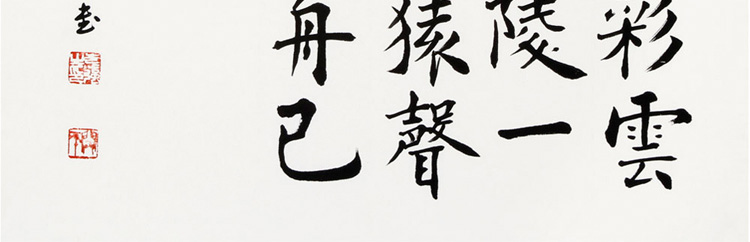 彩雲
陵一
猿聲
舟已
書